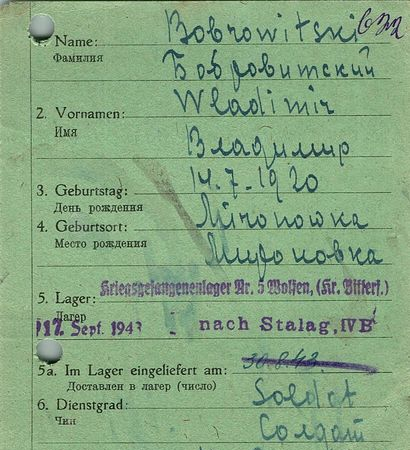 Bobrowitski
1. Name:
Фамилия
Бобровитский
Wladimir
2. Vornamen:
Имя
Владимир
3. Geburtstag: 14.7.1920
День рождения
4. Geburtsort: Mironowka
Место рождения
Мироновка
Kriegsgefangenenlager Nr. 5 Wolfen, (Kr. Bitterf.)
5. Lager:
Лагер
17. Sept. 1943 nach Stalag, IV B
5a. Im Lager eingeliefert am: 30.8.43
Доставлен в лагер (число)
Soldat
6. Dienstgrad:
Чин
Солдат